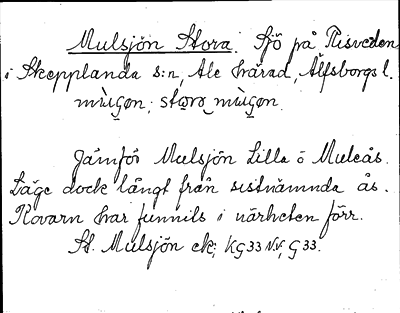 Mulsjön Stora. Sjö på Risveden
i Skepplanda s:n, Ale härad, Älfsborgs l.
mùi̯gǫn; stǫrǫ mùi̯gǫn.
Jämför Mulsjön Lilla o Muleås.
Läge dock långt från sistnämnda ås.
Kvarn har funnits i närheten förr.
St. Mulsjön ek; KG33 NV, G33.